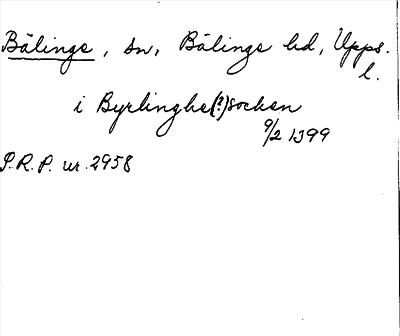 Bälinge, sn, Bälinge hd, Upps.
l.
i Byrlinghe(?)socken
9/2 1399
S.R.P. nr. 2958